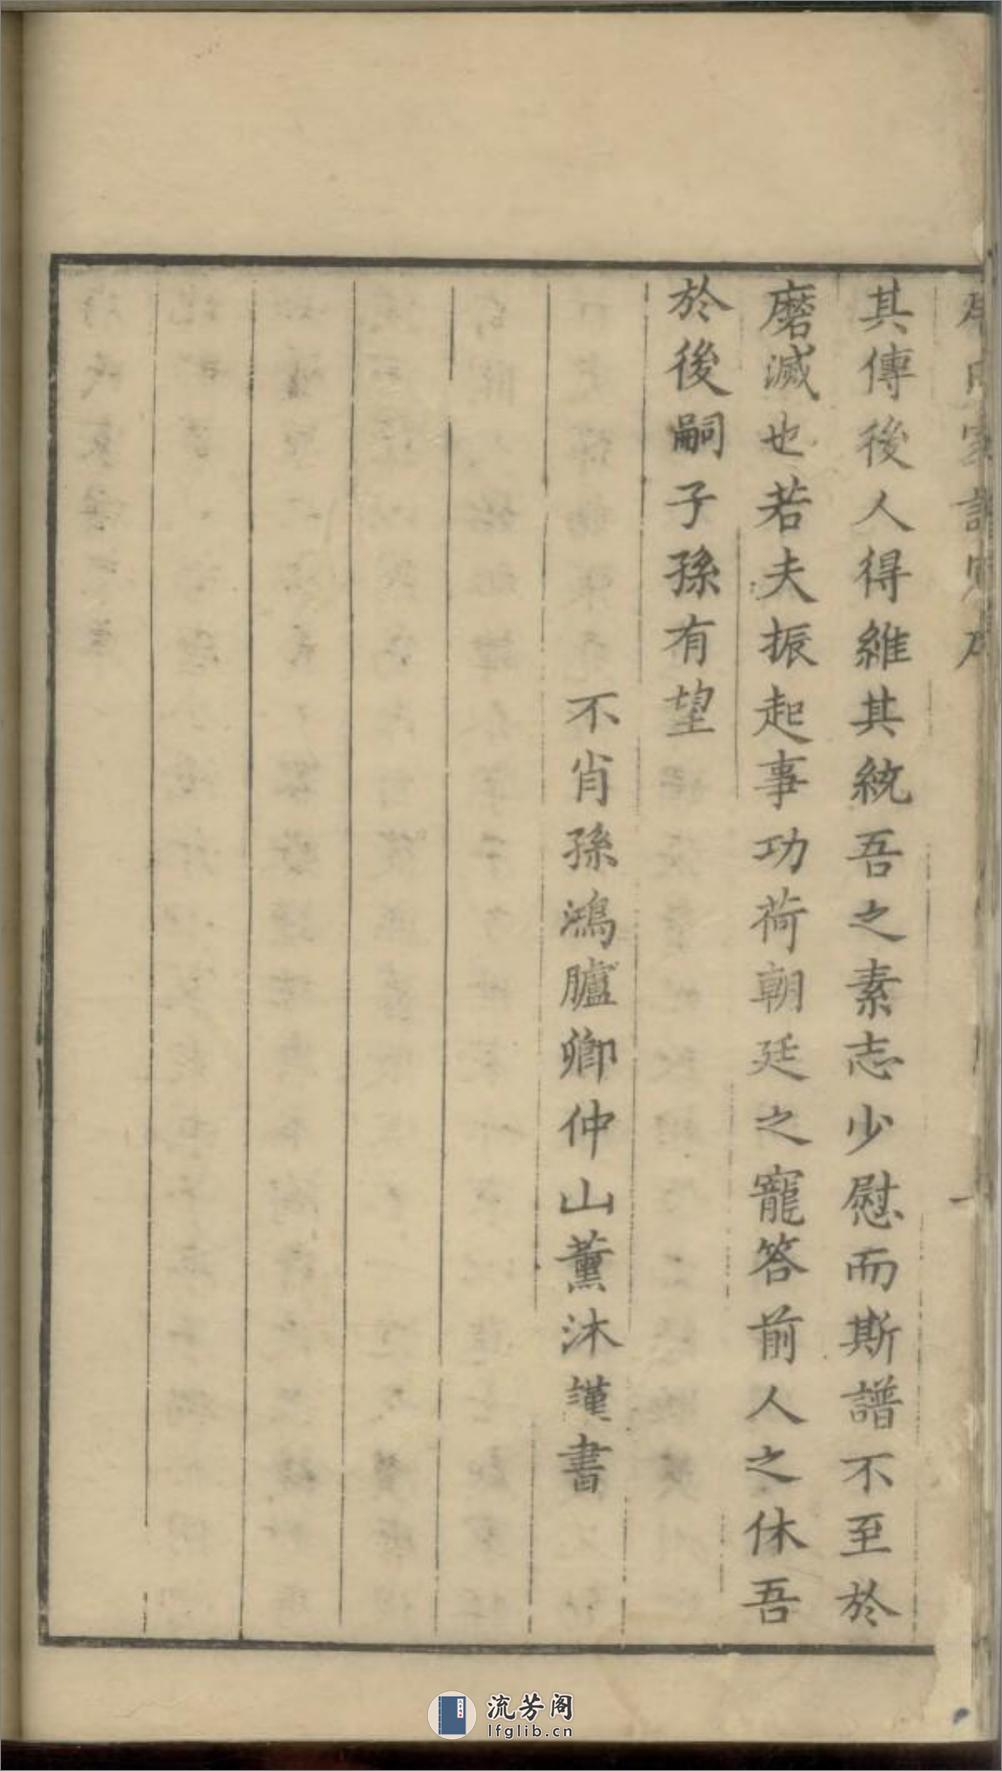 其傳後人得維其統吾之素志少慰而斯譜不至於
磨滅也若夫振起事功荷朝廷之寵答前人之休吾
於後嗣子孫有望
不肖孫鴻臚卿仲山薰沐謹書
流芳阁
lfglib.cn